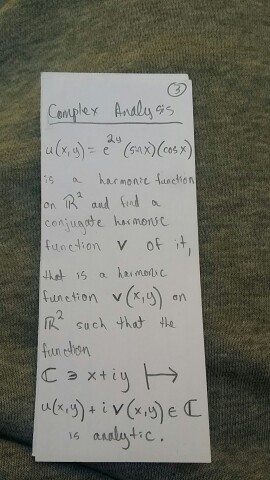 ③
Complex Analysis
u(x,y) = e^{2y} (sin x)(cos x)
is a harmonic function
on ℝ² and find a
conjugate harmonic
function v of it,
that is a harmonic
function v(x,y) on
ℝ² such that the
function
ℂ ∋ x+iy ⟼
u(x,y) + i v(x,y) ∈ ℂ
is analytic.